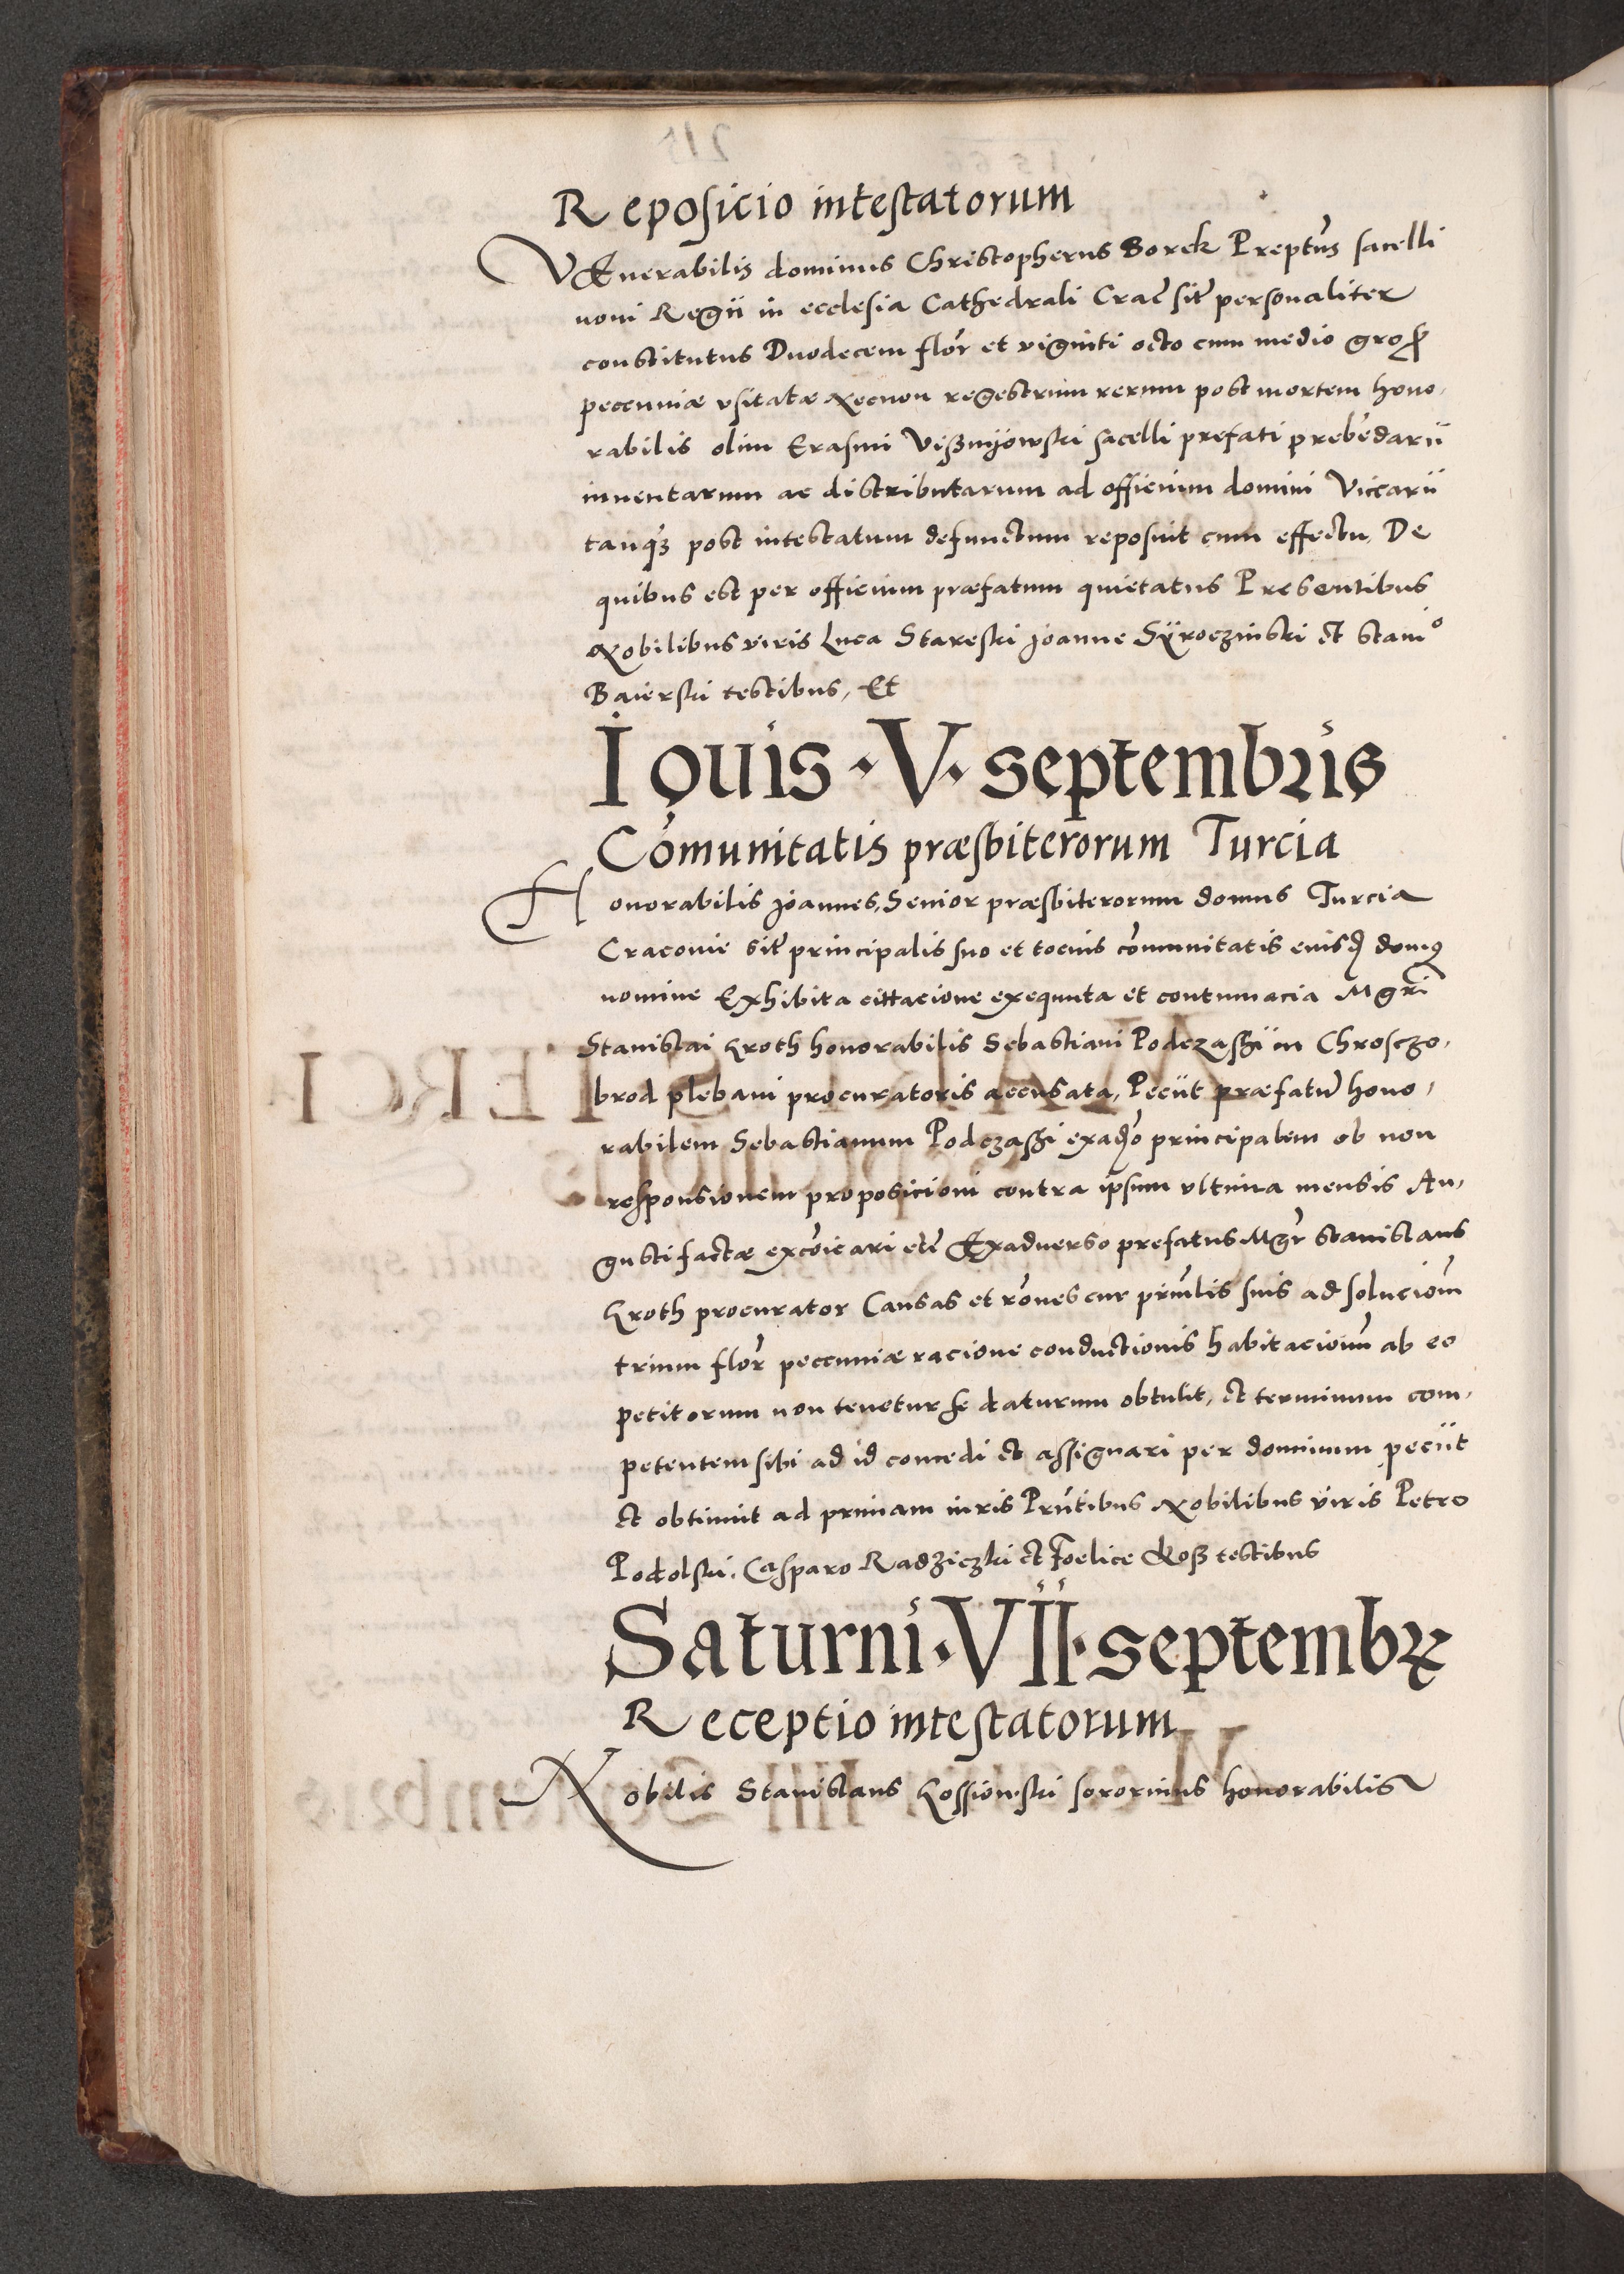 Reposicio intestatorum
VEnerabilis dominus Christopherus Borek Preptũs sacelli
noui Regii in ecclesia Cathedrali Crac̃ sit̃ personaliter
constitutus Duodecem flor̃ et viginti octo cum medio gros̃
peccuniæ vsitatæ Necnon regestrum rerum post mortem hono,
rabilis olim Erasmi Vißnijowski sacelli prefati prebẽdarii
inuentarum ac distributarum ad officium domini Viccarii
tanqȝ post intestatum defunctum reposuit cum effectu, De
quibus est per officium præfatum quietatus Presentibus
Nobilibus viris Luca Stareski Joanne Sÿroczinski et Stani°
Baierski testibus, Et
Iouis · V · septembris
Com̃unitatis præsbiterorum Turcia
Honorabilis Joannes, Senior præsbiterorum domus Turcia
Cracouie sit̃ principalis suo et tocius com̃unitatis eiusd̃ domꝰ
nomine Exhibita cittacione exequuta et contumacia Mgr̃i
Stanislai Kroth honorabilis Sebastiani Podczaszii in Chrosczo,
brod plebani procuratoris accusata, Peciit præfatum̃ hono,
rabilem Sebastianum Podczaszi exad̃o principalem ob non
responsionem proposicioni contra ipsum vltima mensis Au,
gusti factæ excõicari etc̃ Exaduerso prefatus Mgr̃ Stanislaus
Kroth procurator Causas et rõnes cur prin̄lis suis ad solucion̄
trium flor̃ peccuniæ racione conductionis habitacionum̃ ab eo
petitorum non tenetur se daturum obtulit, et terminum com,
petentem sibi ad id concedi et assignari per dominum peciit
et obtinuit ad primam iuris Prñtibus Nobilibus viris Petro
Podolski, Casparo Radziczki et Foelice Koß testibus
Saturni · VII · septembꝝ
Receptio intestatorum
Nobilis Stanislaus Kossiowski sororinus honorabilis